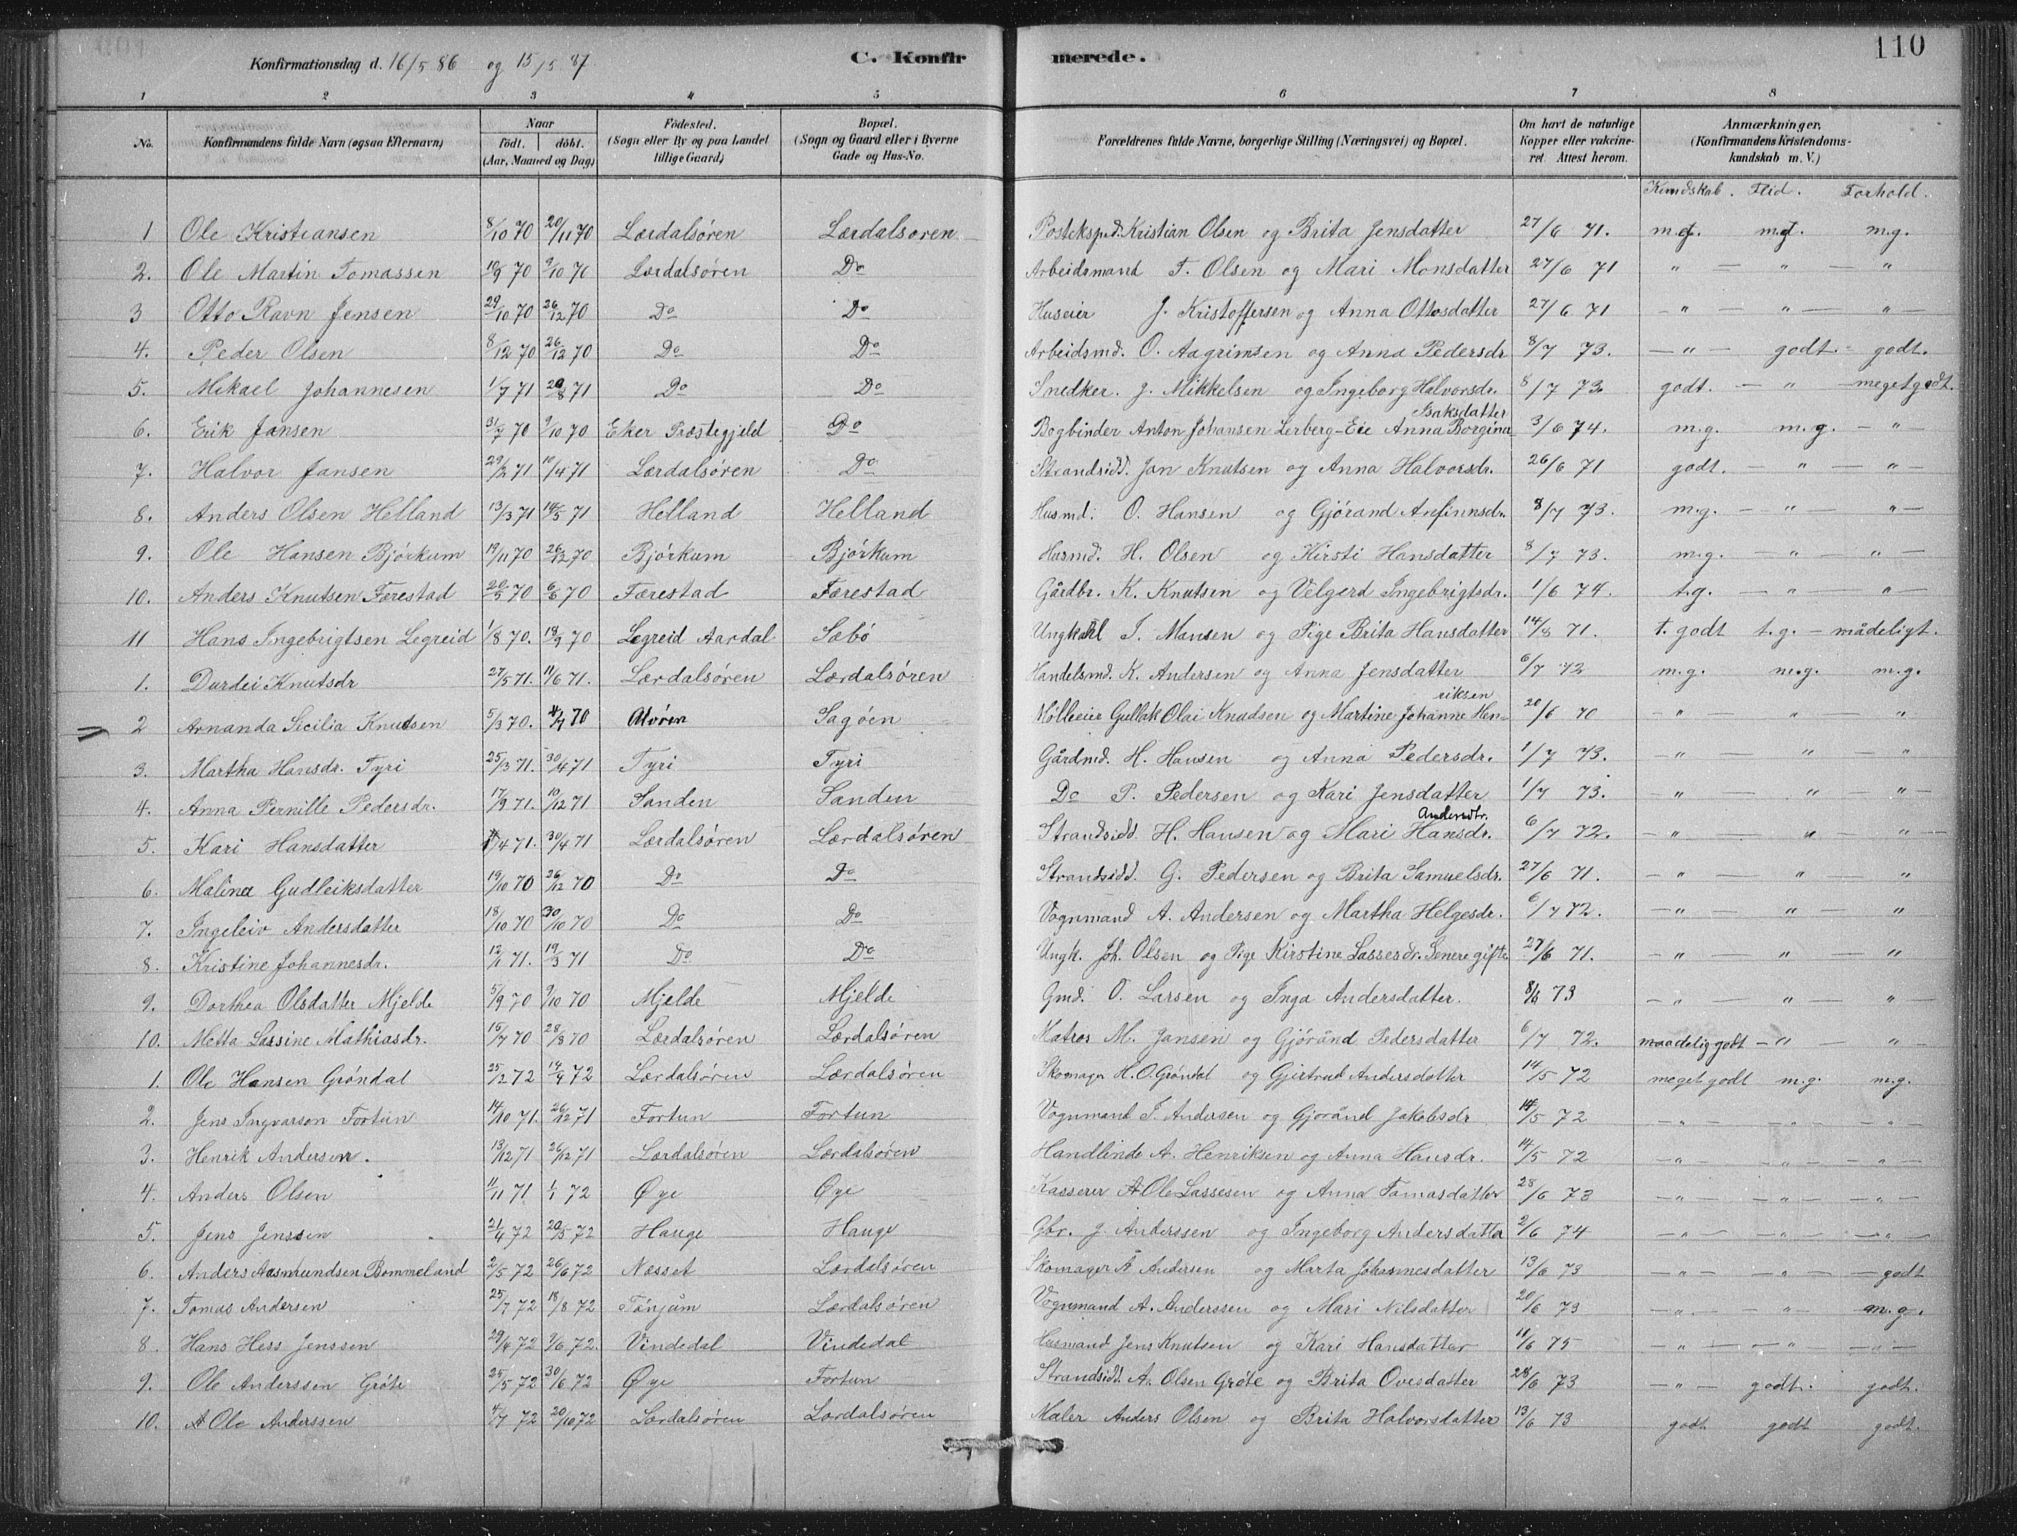 110
Konfirmationsdag d. 16/5 86 og 15/5 87. C. Konfirmerede.
1 2 3 4 5 6 7 8
No. Konfirmandens fulde Navn (ogsaa Efternavn) Naar födt. döbt. (Aar, Maaned og Dag) Födested. (Sogn eller By og paa Landet tillige Gaard) Bopæl. (Sogn og Gaard eller i Byerne Gade og Hus-No. Forældrenes fulde Navne, borgerlige Stilling (Næringsvei) og Bopæl. Om havt de naturlige Kopper eller vakcineret. Attest herom. Anmærkninger. (Konfirmandens Kristendomskundskab m. V.)
Kundskab. Flid. Forhold.
1 Ole Kristiansen 8/10 70 20/11 70 Lærdalsören Lærdalsoren Posteksped. Kristian Olsen og Brita Jensdatter 27/6 71. m.g. m.g. m.g.
2. Ole Martin Tomassen 9/10 70 Lærdalsören Do Arbeidsmand T. Olsen og Mari Monsdatter 27/6 71 " — " — "
3 Otto Ravn Jensen 29/10 70 26/12 70 Do Do Huseier J. Kristoffersen og Anna Ottosdatter 27/6 71 — " — " — "
4. Peder Olsen 8/12 70 26/12 70 Do Do Arbeidsmd. O. Aagrimsen og Anna Pedersdr 8/7 73. — " — godt. godt.
5. Mikael Johannesen 1/7 71 20/8 71 Do Do Snedker. J. Mikkelsen og Ingeborg Halvorsdr. 8/7 73 godt. — " — meget godt.
6. Erik Jansen 31/7 70 9/10 70 Eker Præstegjeld Do Bogbinder Anton Johansen Lerberg-Eie Anna Borgina Isaksdatter 3/6 74. m.g. m.g. — " —
7. Halvor Jansen 29/2 71 10/4 71 Lærdalsören Do Strandsidd. Jan Knutsen og Anna Halvorsdr. 26/6 71 godt. " — "
8. Anders Olsen Helland 13/3 71 14/5 71 Helland Helland Husmd. O. Hansen og Gjörand Anfinnsdr. 8/7 73. m.g. — " — " —
9. Ole Hansen Björkum 19/11 70 26/12 70 Björkum Björkum Husmd. H. Olsen og Kirsti Hansdatter 8/7 73. m.g. — " — " —
10. Anders Knutsen Færestad 20/5 70 6/6 70 Færestad Færestad Gårdbr. K. Knutsen og Velgerd Ingebrigtsdr. 1/6 74. t.g. — " — " —
11 Hans Ingebrigtsen Legreid 1/8 70. 18/9 70 Legreid Aardal Sæbö Ungkarl I. Monsen og Pige Brita Hansdatter 14/8 71. t. godt t.g. — mådeligt.
1. Durdei Knutsdr 27/5 71. 11/6 71. Lærdalsören Lærdalsören Handelsmd. K. Andersen og Anna Jensdatter 6/7 72 m.g. m.g. m.g.
2 Amanda Sicilia Knudsen 5/3 70. 4/7 70 Alvöen Sagöen Mölleeier Gullak Olai Knudsen og Martine Johanne Henriksen 20/6 70 " " "
3. Martha Hansdr. Tyri 25/3 71. 30/4 71 Tyri Tyri Gårdmd. H. Hansen og Anna Pedersdr. 1/7 73. — " — " — "
4. Anna Pernille Pedersdr. 17/9 71. 10/12 71 Sanden Sanden Do P. Pedersen og Kari Jensdatter 1/7 73. — " — " — " —
5. Kari Hansdatter 1/4 71. 30/4 71 Lærdalsören Lærdalsören Strandsidd. H. Hansen og Mari Hansdr. Andersdtr. 6/7 72. — " — " — "
6. Malina Gudleiksdatter 19/10 70 26/12 70 Do Do Strandsidd. G. Pedersen og Brita Samuelsdr. 27/6 71. — " — " — "
7. Ingeleiv Andersdatter 18/10 70 30/10 70 Do Do Vognmand A. Andersen og Martha Helgesdr. 6/7 72. — " — " — "
8. Kristine Johannesdr. 12/1 71. 19/3 71 Do Do Ungk. Joh. Olsen og Pige Kirstine Lassesdr. Senere gifte 27/6 71. — " — " — "
9. Dorthea Olsdatter Mjelde 5/9 70 9/10 70 Mjelde Mjelde Gmd. O. Larsen og Inga Andersdatter. 8/6 73 — " — " — " —
10. Metta Lassine Mathiasdr. 15/7 70 28/8 70 Lærdalsören Lærdalsören Matros M. Jansen og Gjöränd Pedersdatter 6/7 72. maadelig godt — " — " —
1. Ole Hansen Gröndal 25/2 72 14/4 72 Lærdalsören Lærdalsören Skomager H. O. Gröndal og Gjertrud Andersdatter 14/5 72 meget godt m.g. m.g.
2. Jens Ingvarson Fortun 14/10 71. 26/12 71 Fortun Fortun Vognmand I. Andersen og Gjoränd Jakobsdr 14/5 72 — " — — " — — " —
3. Henrik Andersen. 13/12 71 26/12 71 Lærdalsören Lærdalsören Handlende A. Henriksen og Anna Hansdr. 14/5 72 — " — — " — — " —
4. Anders Olsen 11/11 71 1/1 72 Øye Øye Kasserer Ole Lassesen og Anna Tomasdatter 28/6 73 — " — — " — — " —
5. Jens Jenssen 21/4 72 20/5 72 Hauge Hauge Gbr. J. Anderssen og Ingeborg Andersdatter 2/6 74 — " — — " — — " —
6. Anders Aasmundsen Bommeland 2/5 72 26/6 72 Næsset Lærdalsören Skomager A Andersen og Marta Johannesdatter 13/6 73 — " — — " — godt
7. Tomas Andersen 25/7 72 18/8 72 Tönjum Lærdalsören Vognmand A. Anderssen og Mari Nilsdatter 20/6 73 — " — " — m.g.
8 Hans Hess Jenssen 29/4 72 9/6 72. Vindedal Vindedal Husmand Jens Knutsen og Kari Hansdatter 11/6 75 — " — — " — — " —
9. Ole Anderssen Gröte 25/5 72 30/6 72 Øye Fortun Strandsidd. A. Olsen Gröte og Brita Ovesdatter 28/6 73 — " — godt. godt.
10. Ole Anderssen 4/7 72 20/10 72 Lærdalsören Lærdalsören Maler Anders Olsen og Brita Halvorsdatter 13/6 73 godt godt godt.